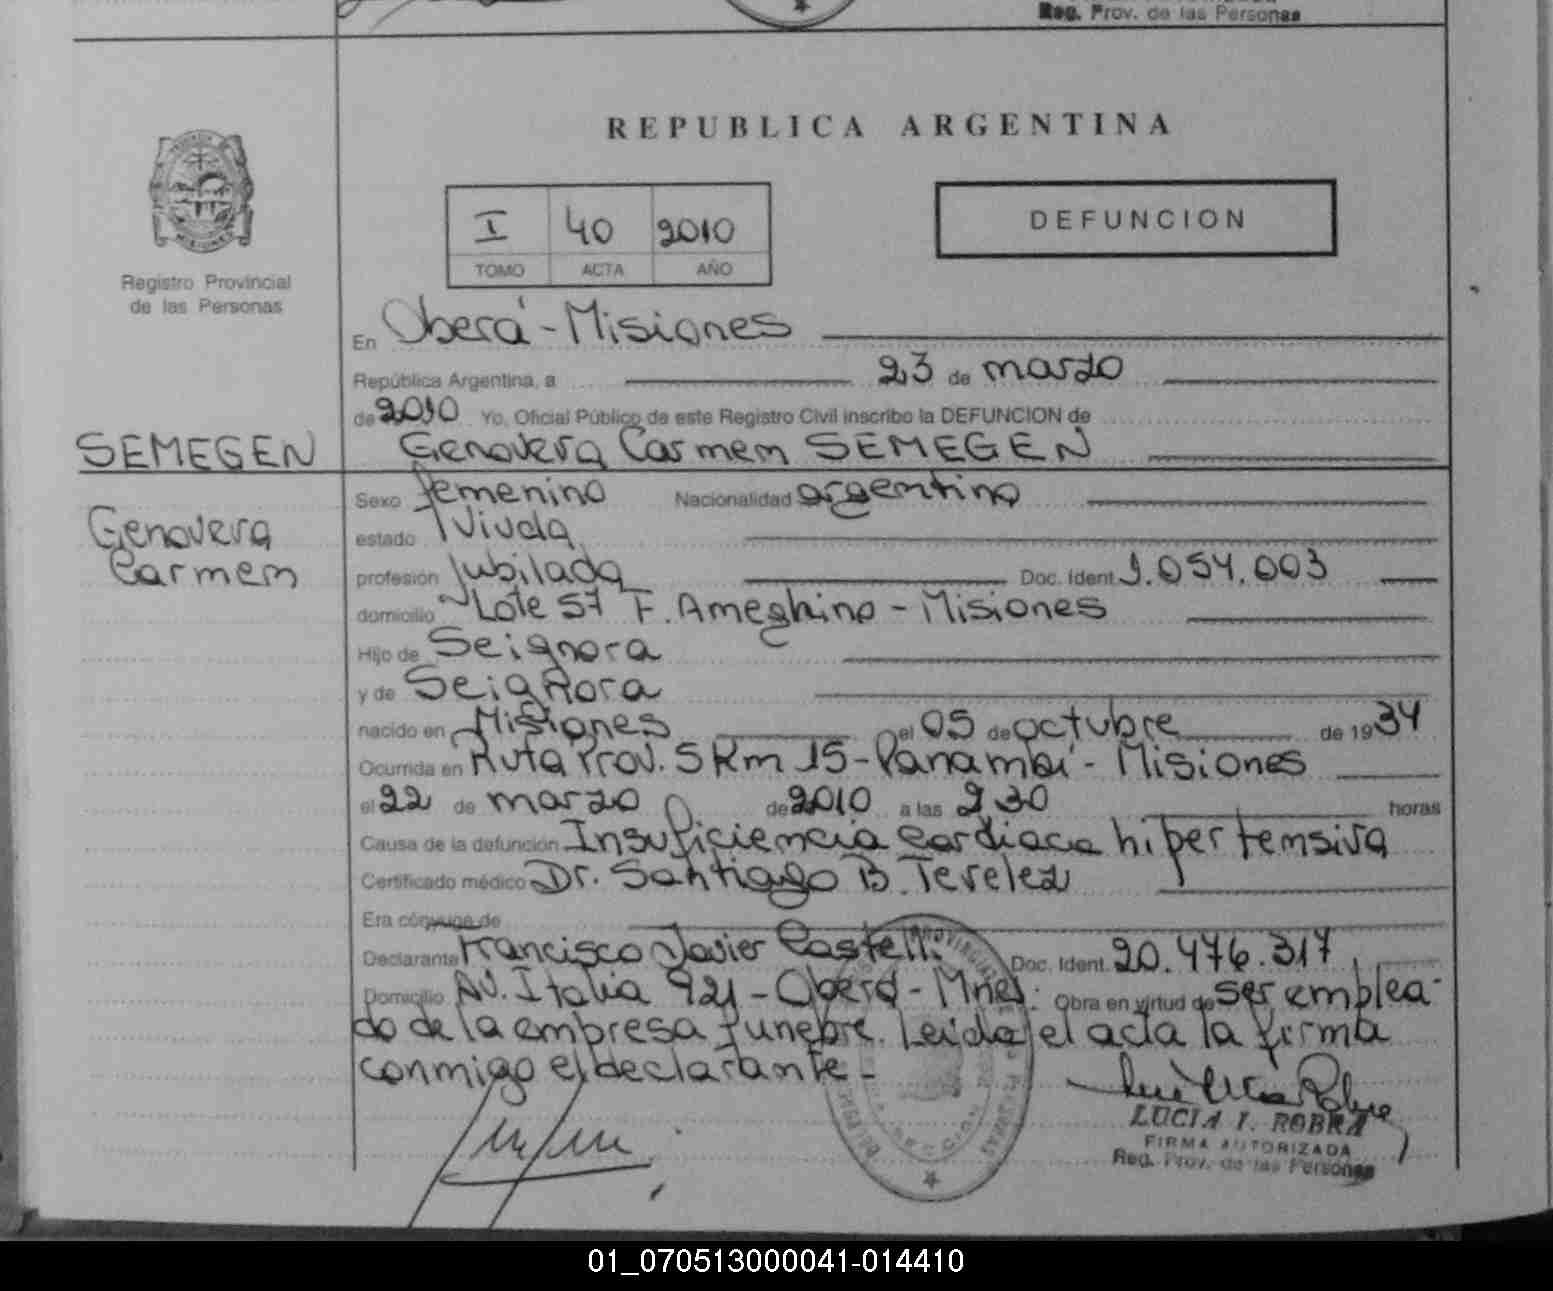 Reg. Prov. de las Personas
REPUBLICA ARGENTINA
I 40 2010
TOMO ACTA AÑO
DEFUNCION
Registro Provincial
de las Personas
En Oberá - Misiones
República Argentina, a 23 de marzo
de 2010 Yo, Oficial Público de este Registro Civil inscribo la DEFUNCION de
SEMEGEN Genovera Carmem SEMEGEN
Genovera
Carmem
Sexo femenino Nacionalidad argentina
estado Viuda
profesión Jubilada Doc. Ident. 1.054.003
domicilio Lote 57 F. Ameghino - Misiones
Hijo de Seignora
y de Seignora
nacido en Misiones el 05 de octubre de 1934
Ocurrida en Ruta Prov. 5 Km 15 - Panambí - Misiones
el 22 de marzo de 2010 a las 2 30 horas
Causa de la defunción Insuficiencia cardiaca hipertensiva
Certificado médico Dr. Santiago B. Terelez
Era cónyuge de
Declarante Francisco Javier Castelli Doc. Ident. 20.476.317
Domicilio AV. Italia 921 - Oberá - Mnes. Obra en virtud de ser emplea-
do de la empresa funebre. Leida el acta la firma
conmigo el declarante -
LUCIA I. ROBRA
FIRMA AUTORIZADA
Reg. Prov. de las Personas
01_070513000041-014410